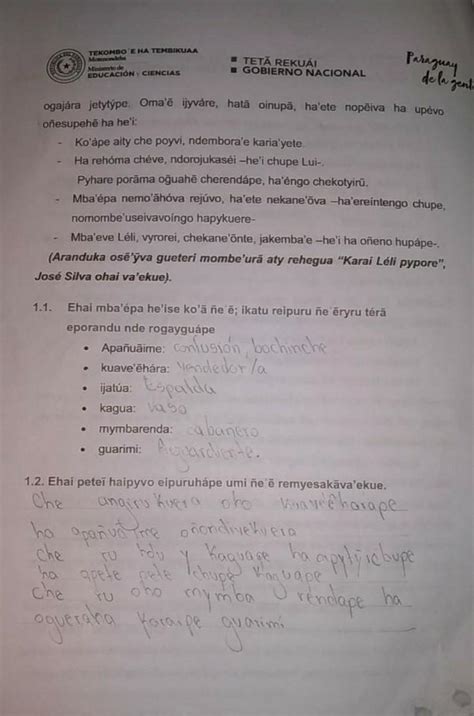 TEKOMBO'E HA TEMBIKUAA
Motenondeha
Ministerio de
EDUCACIÓN y CIENCIAS
TETÃ REKUÁI
GOBIERNO NACIONAL
Paraguay
de la gente
ogajára jetytýpe. Oma'ẽ ijyváre, hatã oinupã, ha'ete nopẽiva ha upévo
oñesupehẽ ha he'i:
- Ko'ápe aity che poyvi, ndembora'e karia'yete.
- Ha rehóma chéve, ndorojukaséi –he'i chupe Lui-.
Pyhare porãma oğuahẽ cherendápe, ha'éngo chekotyirũ.
- Mba'épa nemo'ãhóva rejúvo, ha'ete nekane'õva –ha'ereintengo chupe,
nomombe'useivavoíngo hapykuere-
- Mba'eve Léli, vyrorei, chekane'õnte, jakemba'e –he'i ha oñeno hupápe-.
(Aranduka osẽ'ỹva gueteri mombe'urã aty rehegua "Karai Léli pypore",
José Silva ohai va'ekue).
1.1. Ehai mba'épa he'ise ko'ã ñe'ẽ; ikatu reipuru ñe'ẽryru térã
eporandu nde rogayguápe
• Apañuãime: confusión, bochinche
• kuave'ẽhára: Vendedor/a
• ijatúa: Espalda
• kagua: vaso
• mymbarenda: cabañero
• guarimi: Aguardiente.
1.2. Ehai peteĩ haipyvo eipuruhápe umi ñe'ẽ remyesakãva'ekue.
Che angirũ kuera oho kuave'ẽharape
ha apañuãime oñondivekuera
che ru y kaguape ha
ha chupe
Che ru oho mymba rendape ha
ogueraha karaipe guarimi